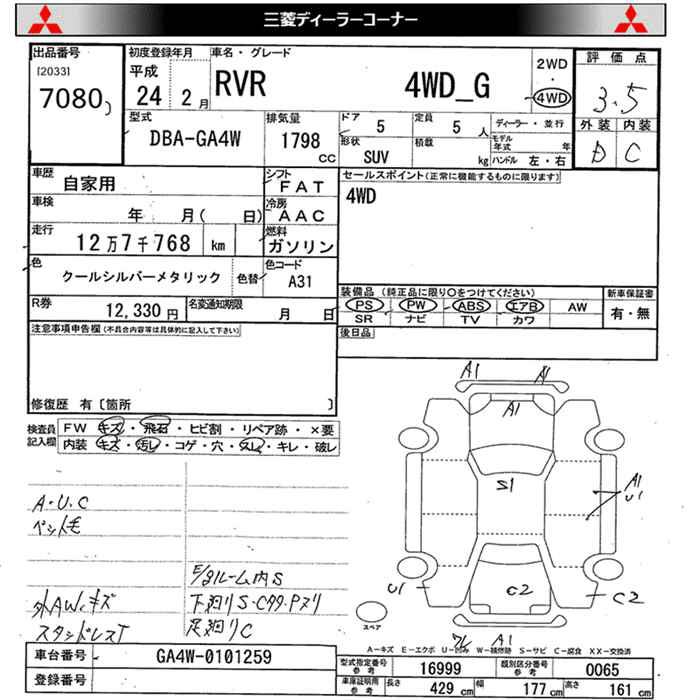 三菱ディーラーコーナー
出品番号
[2033]
7080
初度登録年月
平成
24 2月
車名・グレード
RVR 4WD_G
2WD
・
4WD
評価点
3.5
外装 内装
D C
型式
DBA-GA4W
排気量
1798
cc
ドア
5
定員
5 人
形状
SUV
積載
kg
ディーラー・並行
モデル年式 年
ハンドル 左・右
車歴
自家用
シフト
FAT
車検
年 月( 日)
冷房
AAC
走行
12万7千768 km
燃料
ガソリン
色
クールシルバーメタリック
色替
色コード
A31
R券
12,330円
名変通知期限
月 日
セールスポイント(正常に機能するものに限ります)
4WD
装備品 (純正品に限り○をつけてください)
PS PW ABS エアB AW
SR ナビ TV カワ
新車保証書
有・無
後日品
注意事項申告欄(不具合内容等は具体的に記入して下さい)
修復歴 有〔箇所 〕
検査員記入欄
FW キズ・飛石・ヒビ割・リペア跡・×要
内装 キズ・汚レ・コゲ・穴・スレ・キレ・破レ
A・U・C
ペット毛
外AWキズ
スタッドレスT
E/gルーム内S
下廻りS・Cクサ・Pヌリ
足廻りC
A1 A1
A1
S1
A1
U1
U1
C2
C2
ワレ A1
スペア
A－キズ E－エクボ U－凹み W－補修跡 S－サビ C－腐食 XX－交換済
車台番号
GA4W-0101259
登録番号
型式指定番号 参考
16999
類別区分番号 参考
0065
車庫証明用 参考
長さ 429 cm
幅 177 cm
高さ 161 cm